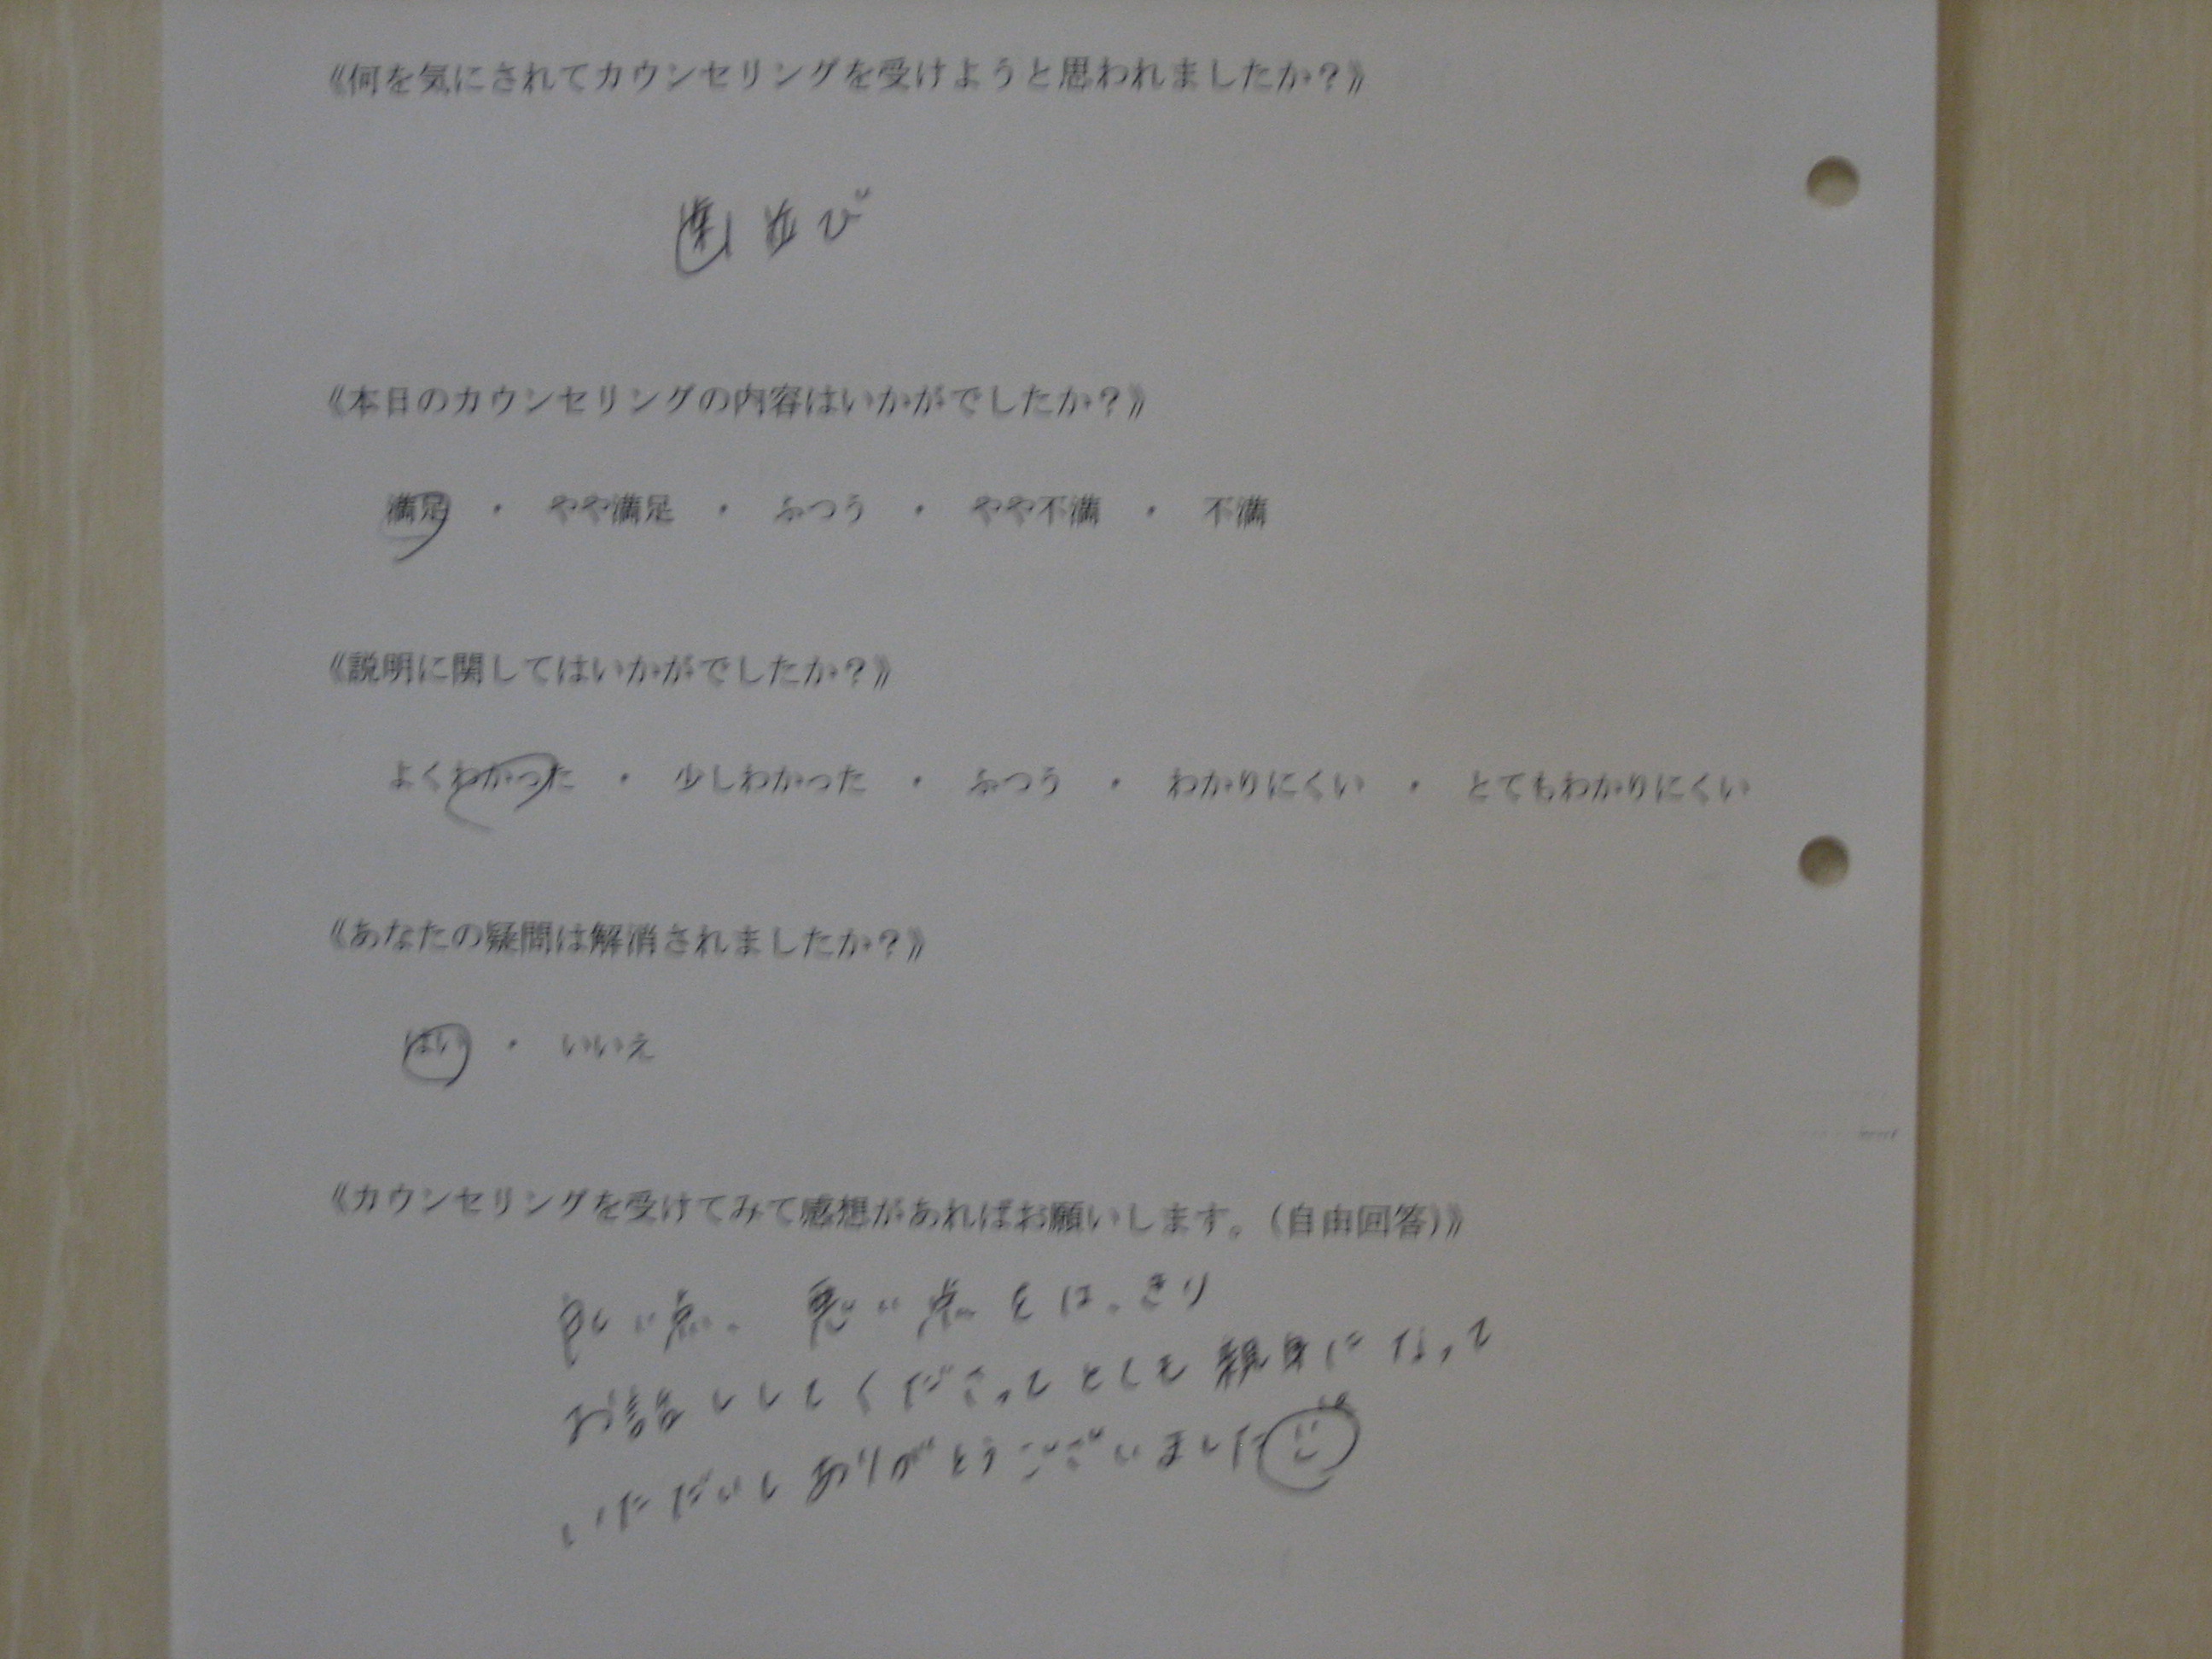 《何を気にされてカウンセリングを受けようと思われましたか？》
歯並び
《本日のカウンセリングの内容はいかがでしたか？》
満足 ・ やや満足 ・ ふつう ・ やや不満 ・ 不満
《説明に関してはいかがでしたか？》
よくわかった ・ 少しわかった ・ ふつう ・ わかりにくい ・ とてもわかりにくい
《あなたの疑問は解消されましたか？》
はい ・ いいえ
《カウンセリングを受けてみて感想があればお願いします。（自由回答）》
良い点、悪い点をはっきり
お話ししてくださってとても親身になって
いただいてありがとうございました